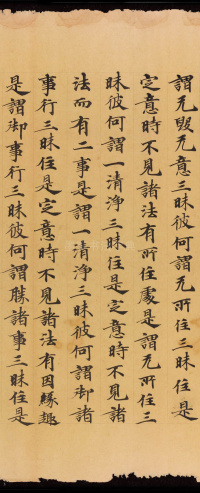 謂无毀无意三昧彼何謂无所住三昧住是
定意時不見諸法有所住處是謂无所住三
昧彼何謂一清淨三昧住是定意時不見諸
法而有二事是謂一清淨三昧彼何謂御諸
事行三昧住是定意時不見諸法有因緣趣
是謂御事行三昧彼何謂勝諸事三昧住是